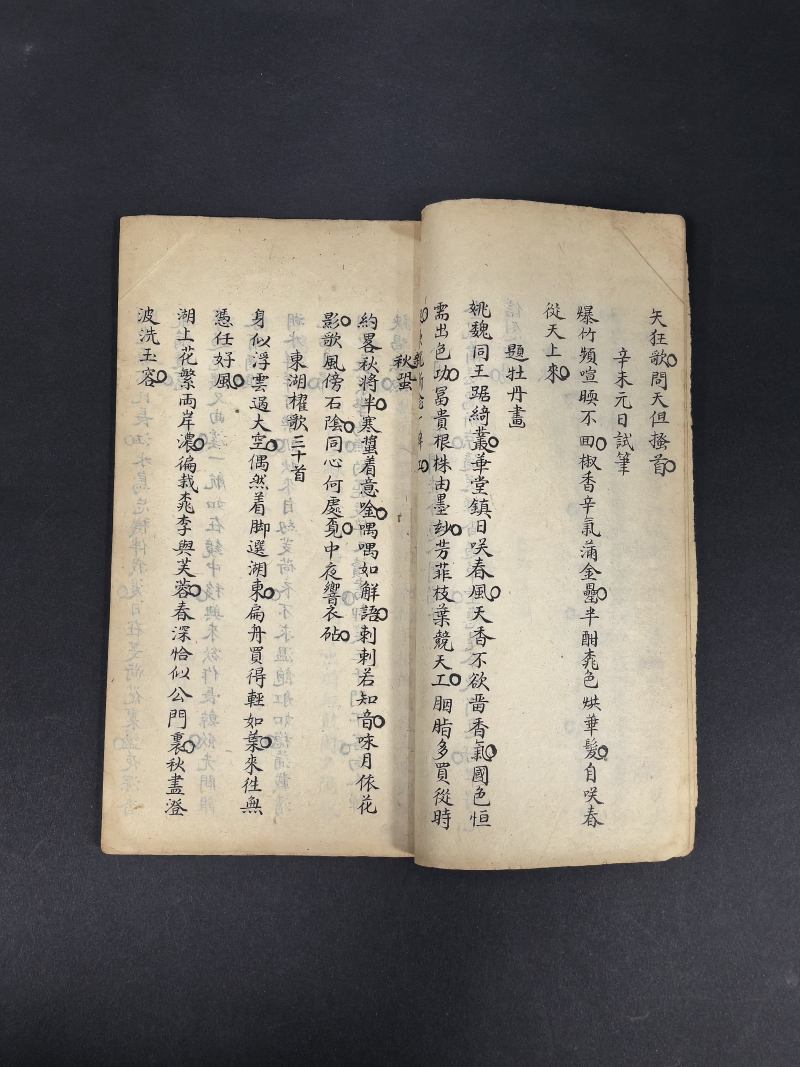 矢狂歌問天但搔首
辛未元日試筆
爆竹頻喧睡不回椒香辛氣蒲金罍半酣桃色烘華髮自咲春
從天上來
題牡丹畫
姚魏同王踞綺叢華堂鎮日咲春風天香不欲啬香氣國色恒
需出色功冨貴根株由墨妙芳菲枝葉競天工胭脂多買從時
秋蛩
約畧秋將半寒螿着意唫喁喁如解語刺刺若知音咏月依花
影歌風傍石陰同心何處覓中夜響衣砧
東湖櫂歌三十首
身似浮雲過大空偶然着脚選湖東扁舟買得輕如葉來徃無
憑任好風
湖上花繁兩岸濃徧栽桃李與芙蓉春深恰似公門裏秋盡澄
波洗玉容